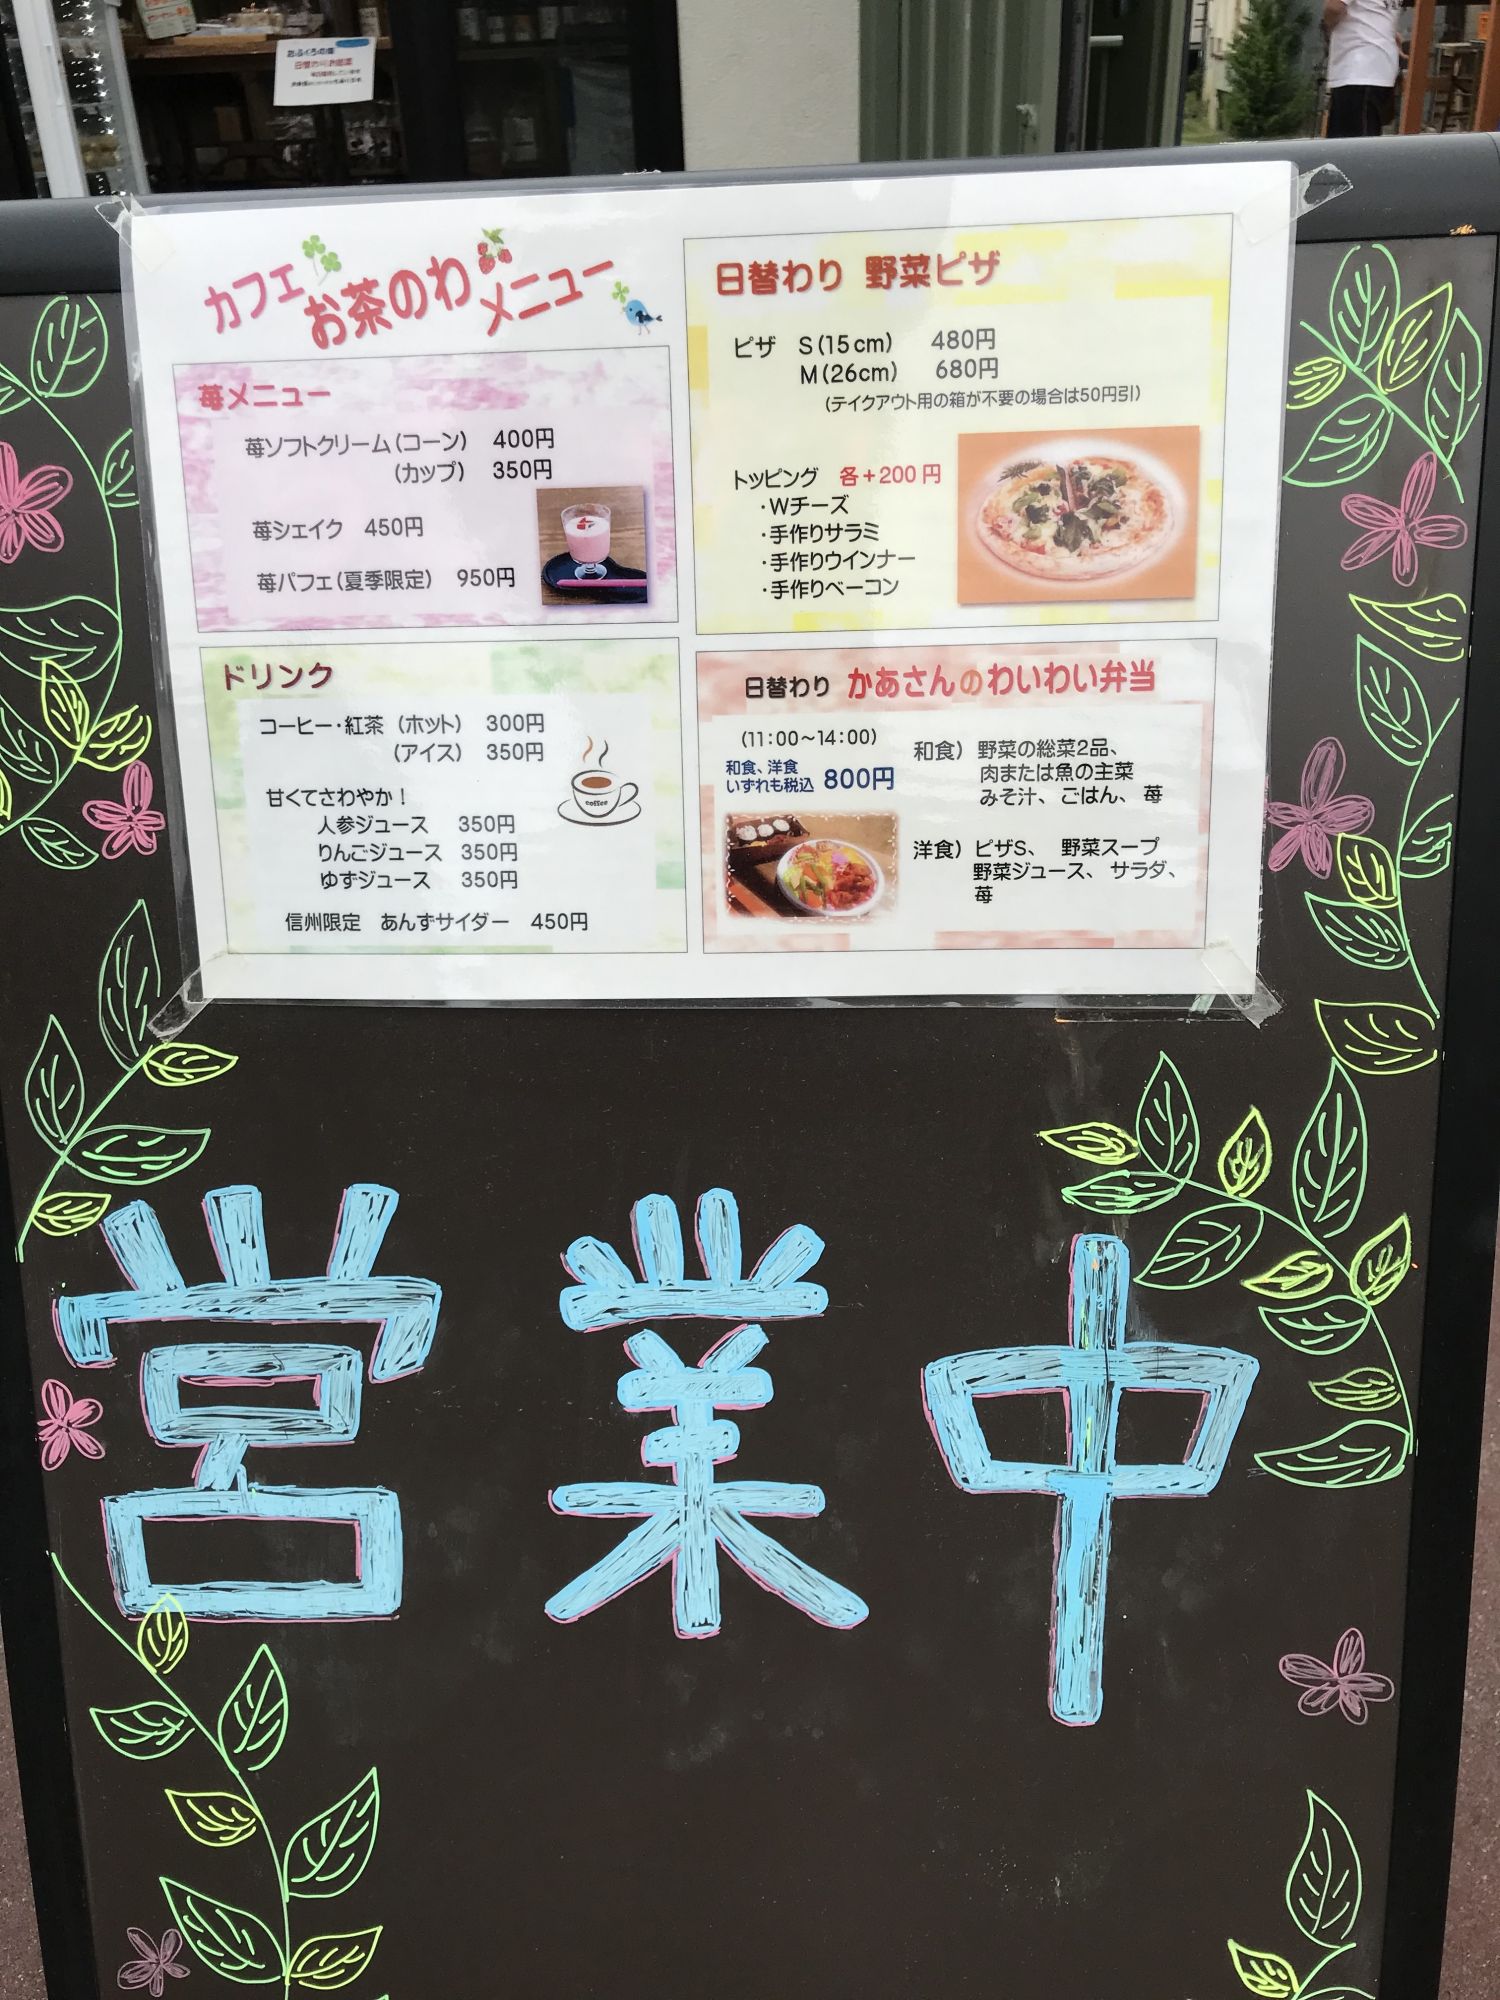 おふくろの味
カフェ お茶のわ メニュー
苺メニュー
苺ソフトクリーム(コーン) 400円
(カップ) 350円
苺シェイク 450円
苺パフェ(夏季限定) 950円
ドリンク
コーヒー・紅茶 (ホット) 300円
(アイス) 350円
甘くてさわやか!
人参ジュース 350円
りんごジュース 350円
ゆずジュース 350円
信州限定 あんずサイダー 450円
coffee
日替わり 野菜ピザ
ピザ S(15cm) 480円
M(26cm) 680円
(テイクアウト用の箱が不要の場合は50円引)
トッピング 各+200円
・Wチーズ
・手作りサラミ
・手作りウインナー
・手作りベーコン
日替わり かあさんのわいわい弁当
(11:00~14:00)
和食、洋食
いずれも税込 800円
和食) 野菜の総菜2品、
肉または魚の主菜
みそ汁、ごはん、苺
洋食) ピザS、 野菜スープ
野菜ジュース、サラダ、
苺
営業中